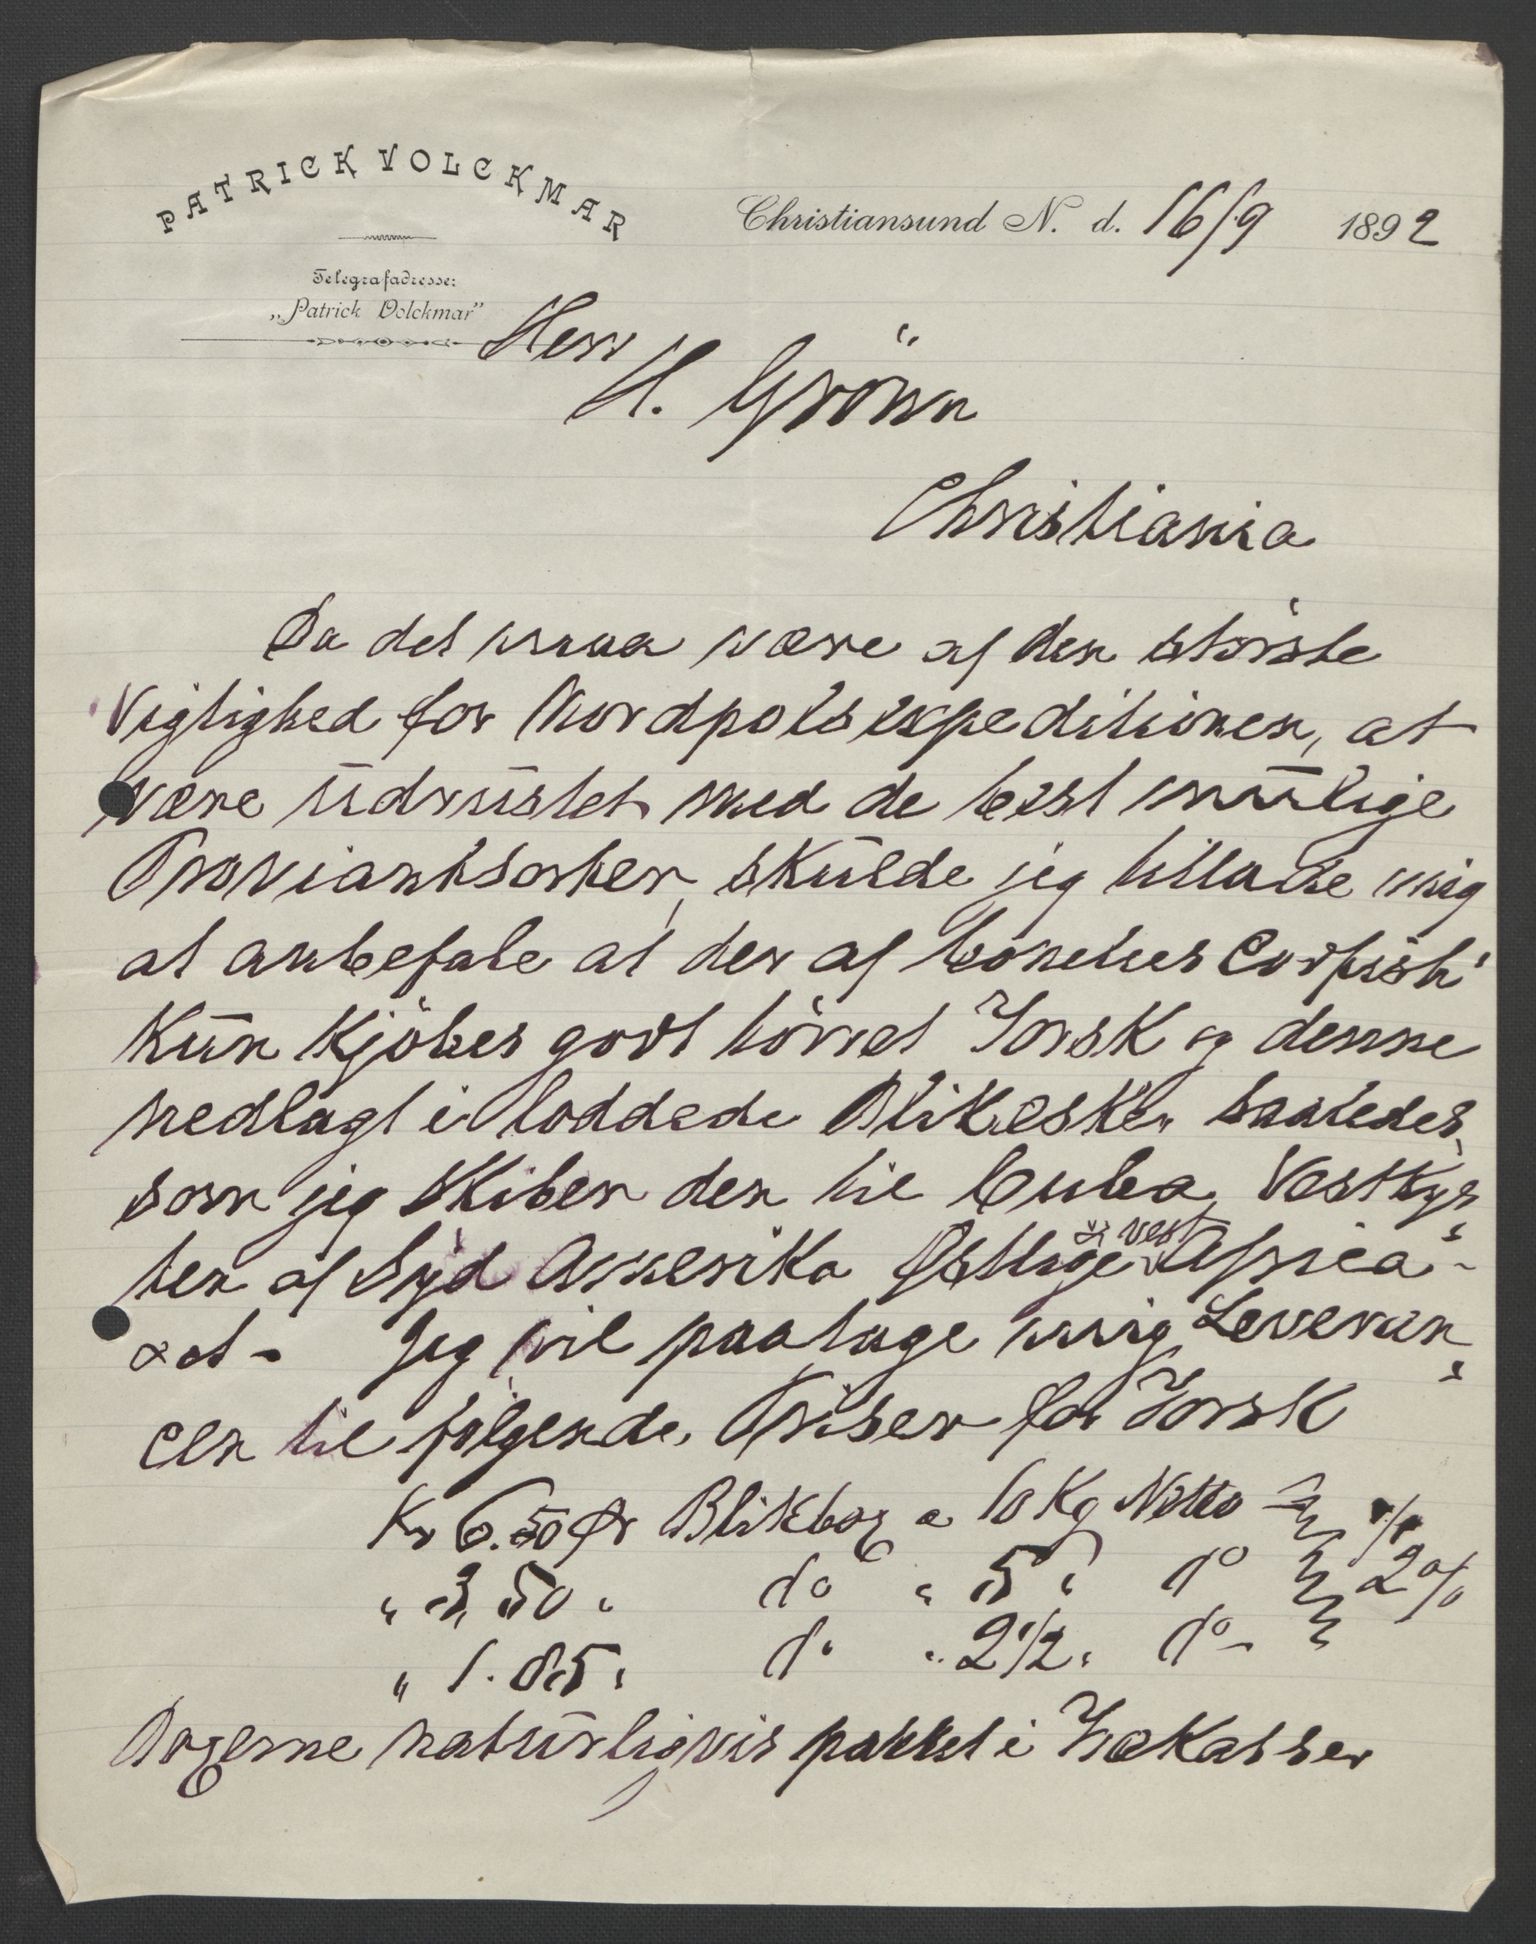 PATRICK VOLCKMAR
Telegrafadresse:
„Patrick Volckmar"
Christiansund N. d. 16/9 1892
Herr
H. Grönn
Christiania
Da det maa være af den störste
Vigtighed for Nordpolsexpeditionen, at
være üdrüstet med de best mülige
Proviantsorter, skülde jeg tillade mig
at anbefale at der af bonelles Codfish
Kün Kjöbes godt törret Torsk og denne
nedlagt i loddede Blikesker saaledes
som jeg skiber den til Cuba, Vestkys-
ten af Syd Amerika Østlige & vest Africa
&ct - Jeg vil paatage mig Leveran-
cen til følgende Priser for Torsk
Kr 6.50 pr Blikbox a 10 Kg Netto %
" 3,50 " do " 5 " do 2%
" 1.85 " do " 2 1/2 " do
Boxerne natürligvis pakket i Trækasser